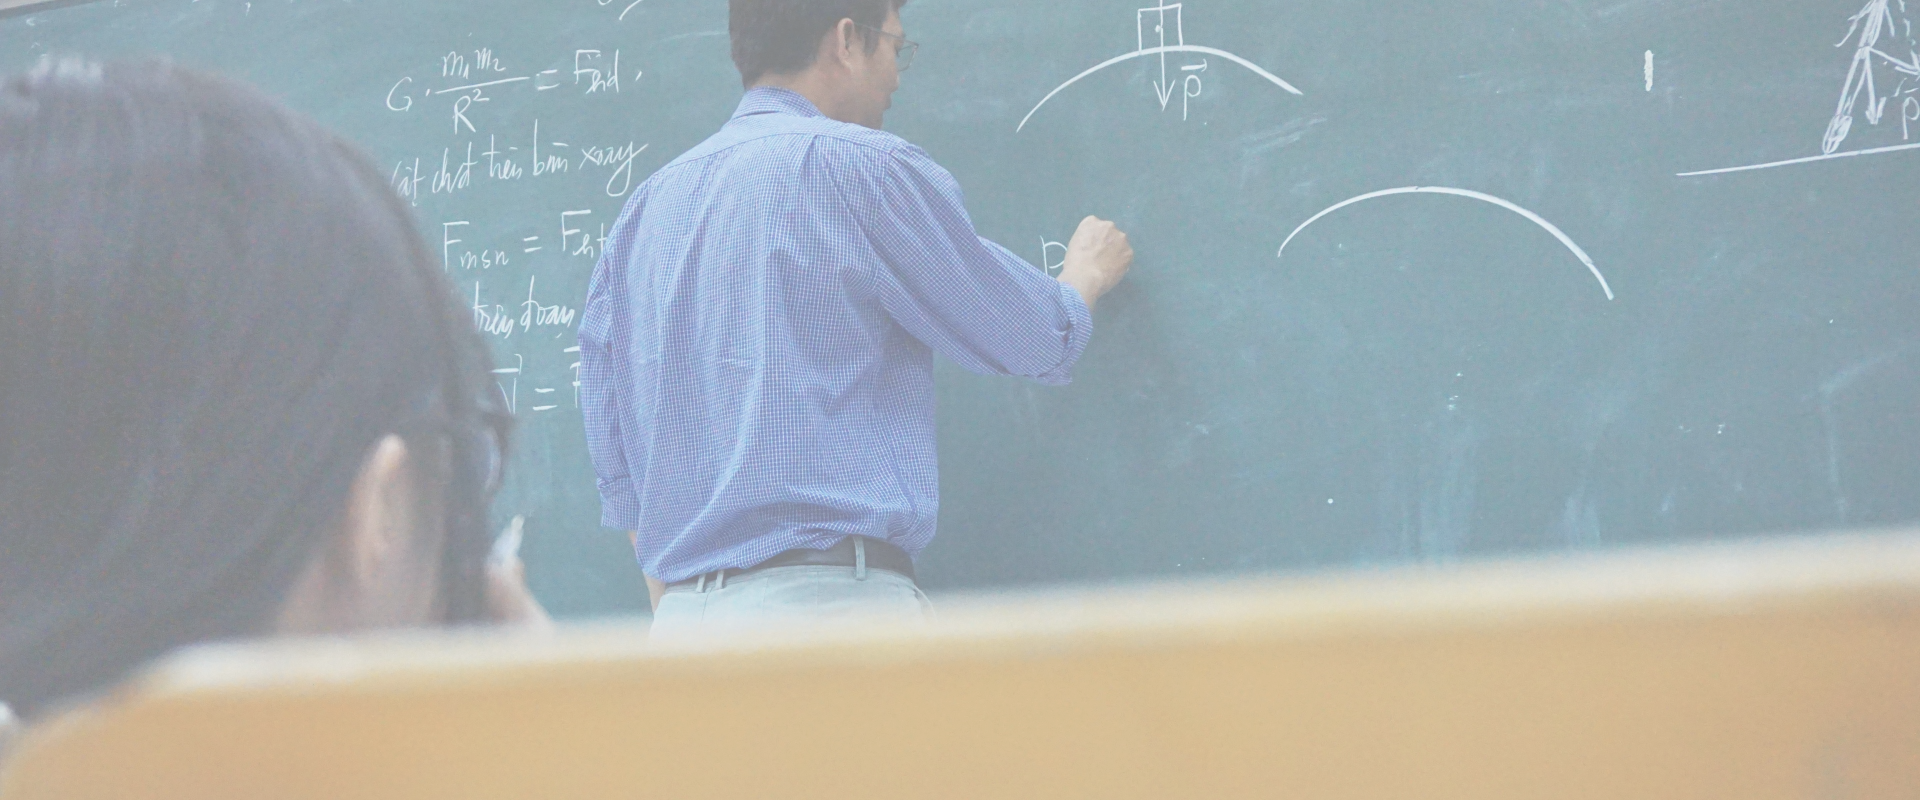 G · m₁m₂ / R² = Fhd,
vật chđ trên bàn xoay
Fmsn = Fht
trên đoạn
N =
P
P
P